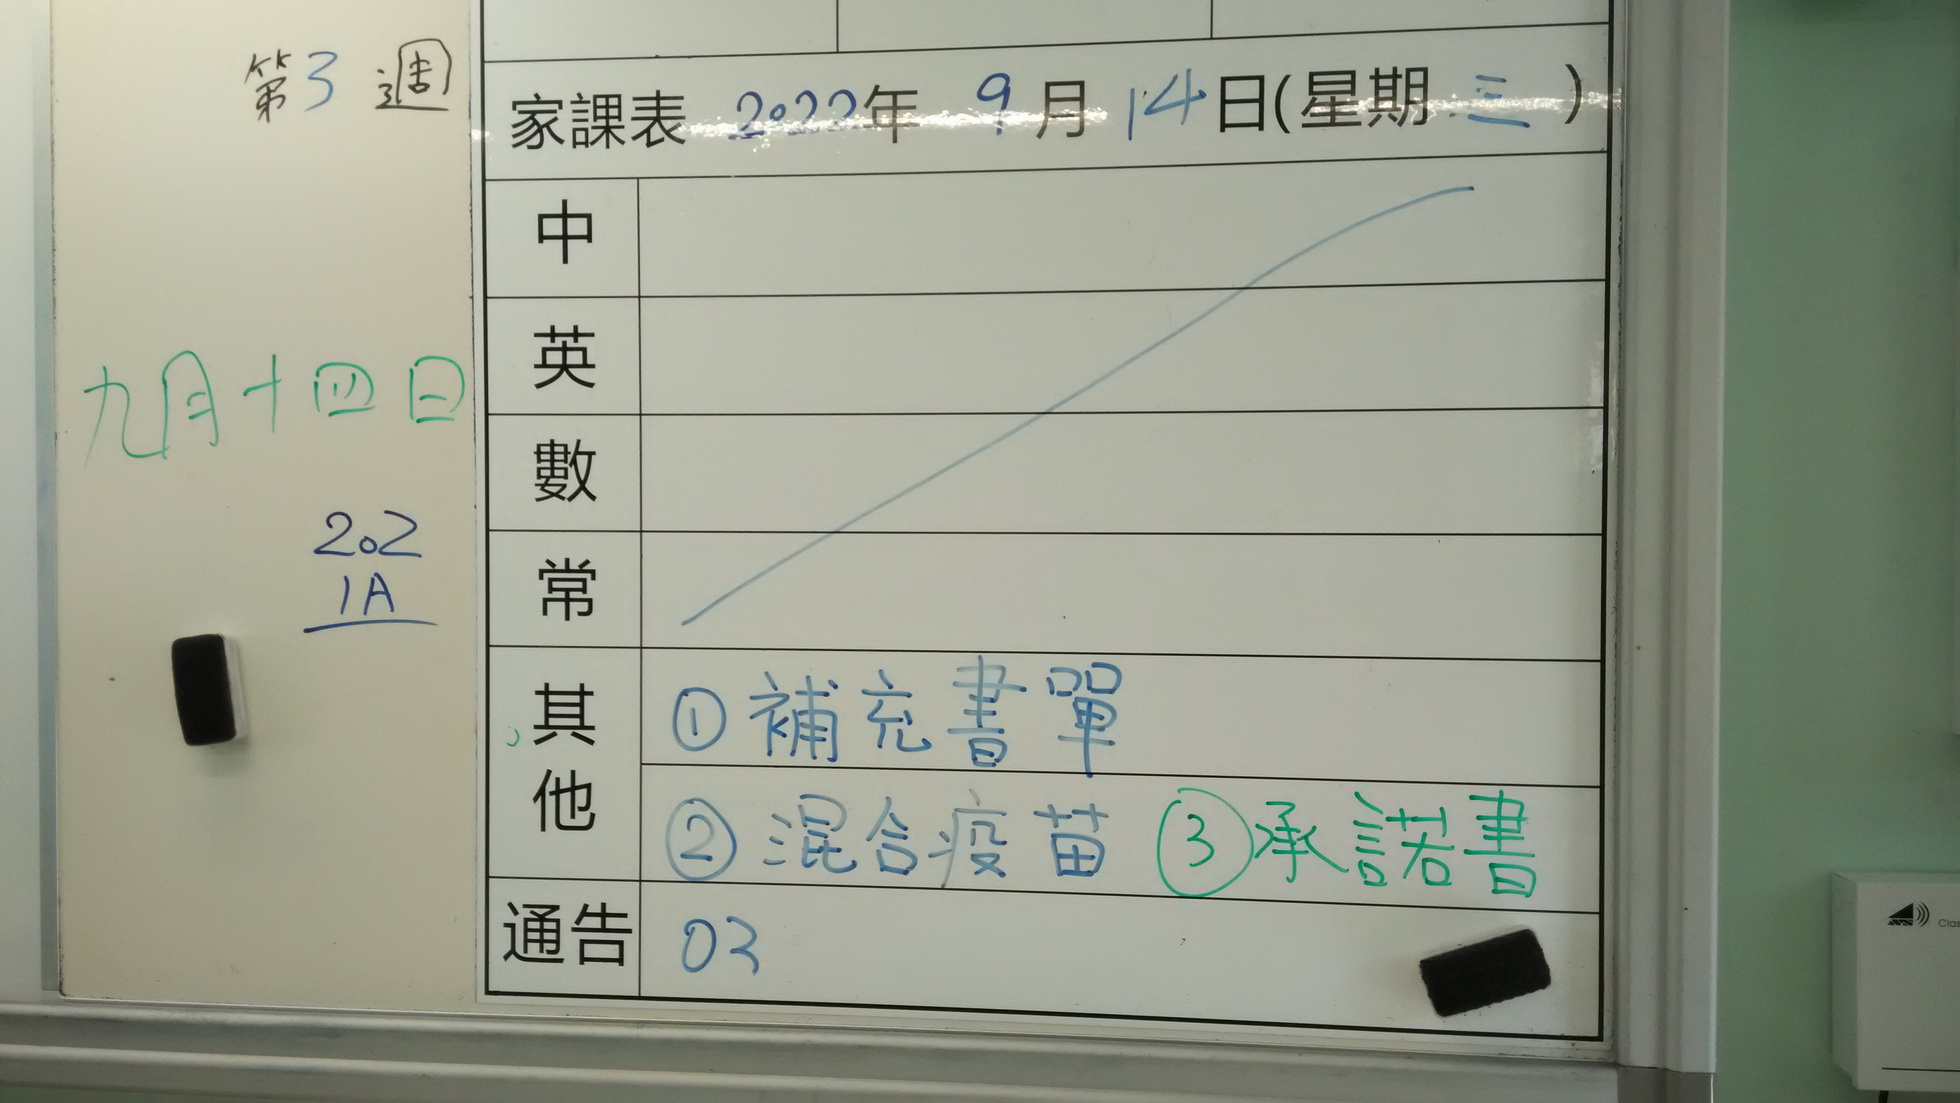 第3週
家課表 2022年 9月14日(星期三)
中
英
九月十四日
數
202
1A
常
其他
①補充書單
②混合疫苗 ③承諾書
通告 03